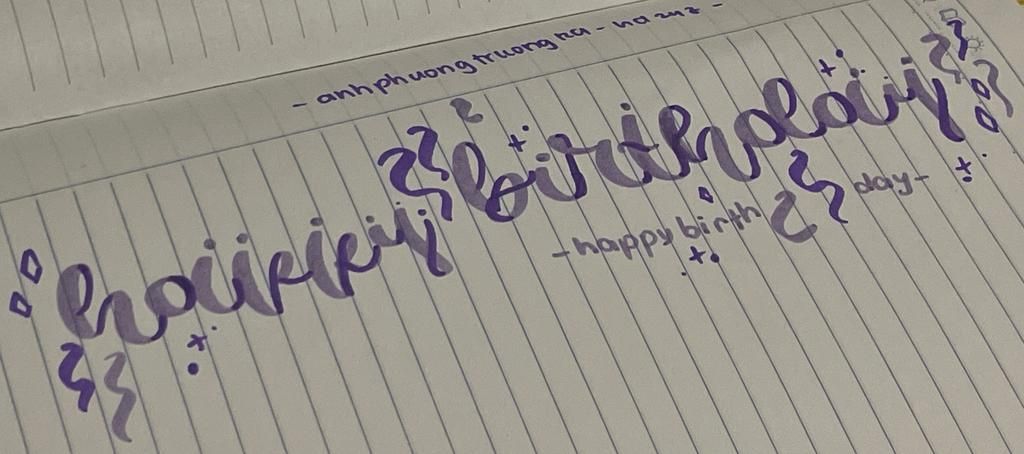 - anhphuongtruongha -
happy birthday
- happy birth day -